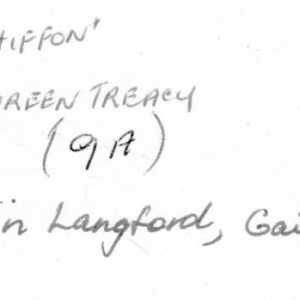 HIFFON'
REEN TREACY
(9A)
in Langford, Gai